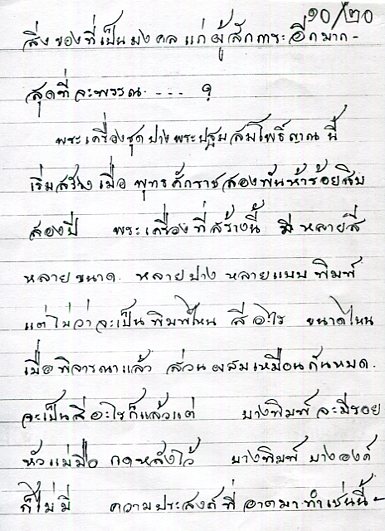 ๑๐/๒๐
สิ่งของที่เป็นมงคลแก่ผู้สักการะอีกมาก-
สุดที่จะพรรณ. - - - ฯ
พระเครื่องชุดปางพระปฐมสมโพธิญาณนี้
เริ่มสร้างเมื่อ พุทธศักราชสองพันห้าร้อยสิบ
สองปี พระเครื่องที่สร้างนี้ มีหลายสี
หลายขนาด. หลายปาง หลายแบบพิมพ์
แต่ไม่ว่าจะเป็นพิมพ์ไหน สีอะไร ขนาดไหน
เมื่อพิจารณาแล้ว ส่วนผสมเหมือนกันหมด.
จะเป็นสีอะไรก็แล้วแต่ บางพิมพ์จะมีรอย
หัวแม่มือ กดหลังไว้ บางพิมพ์ บางองค์
ก็ไม่มี ความประสงค์ที่อาตมาทำเช่นนี้-